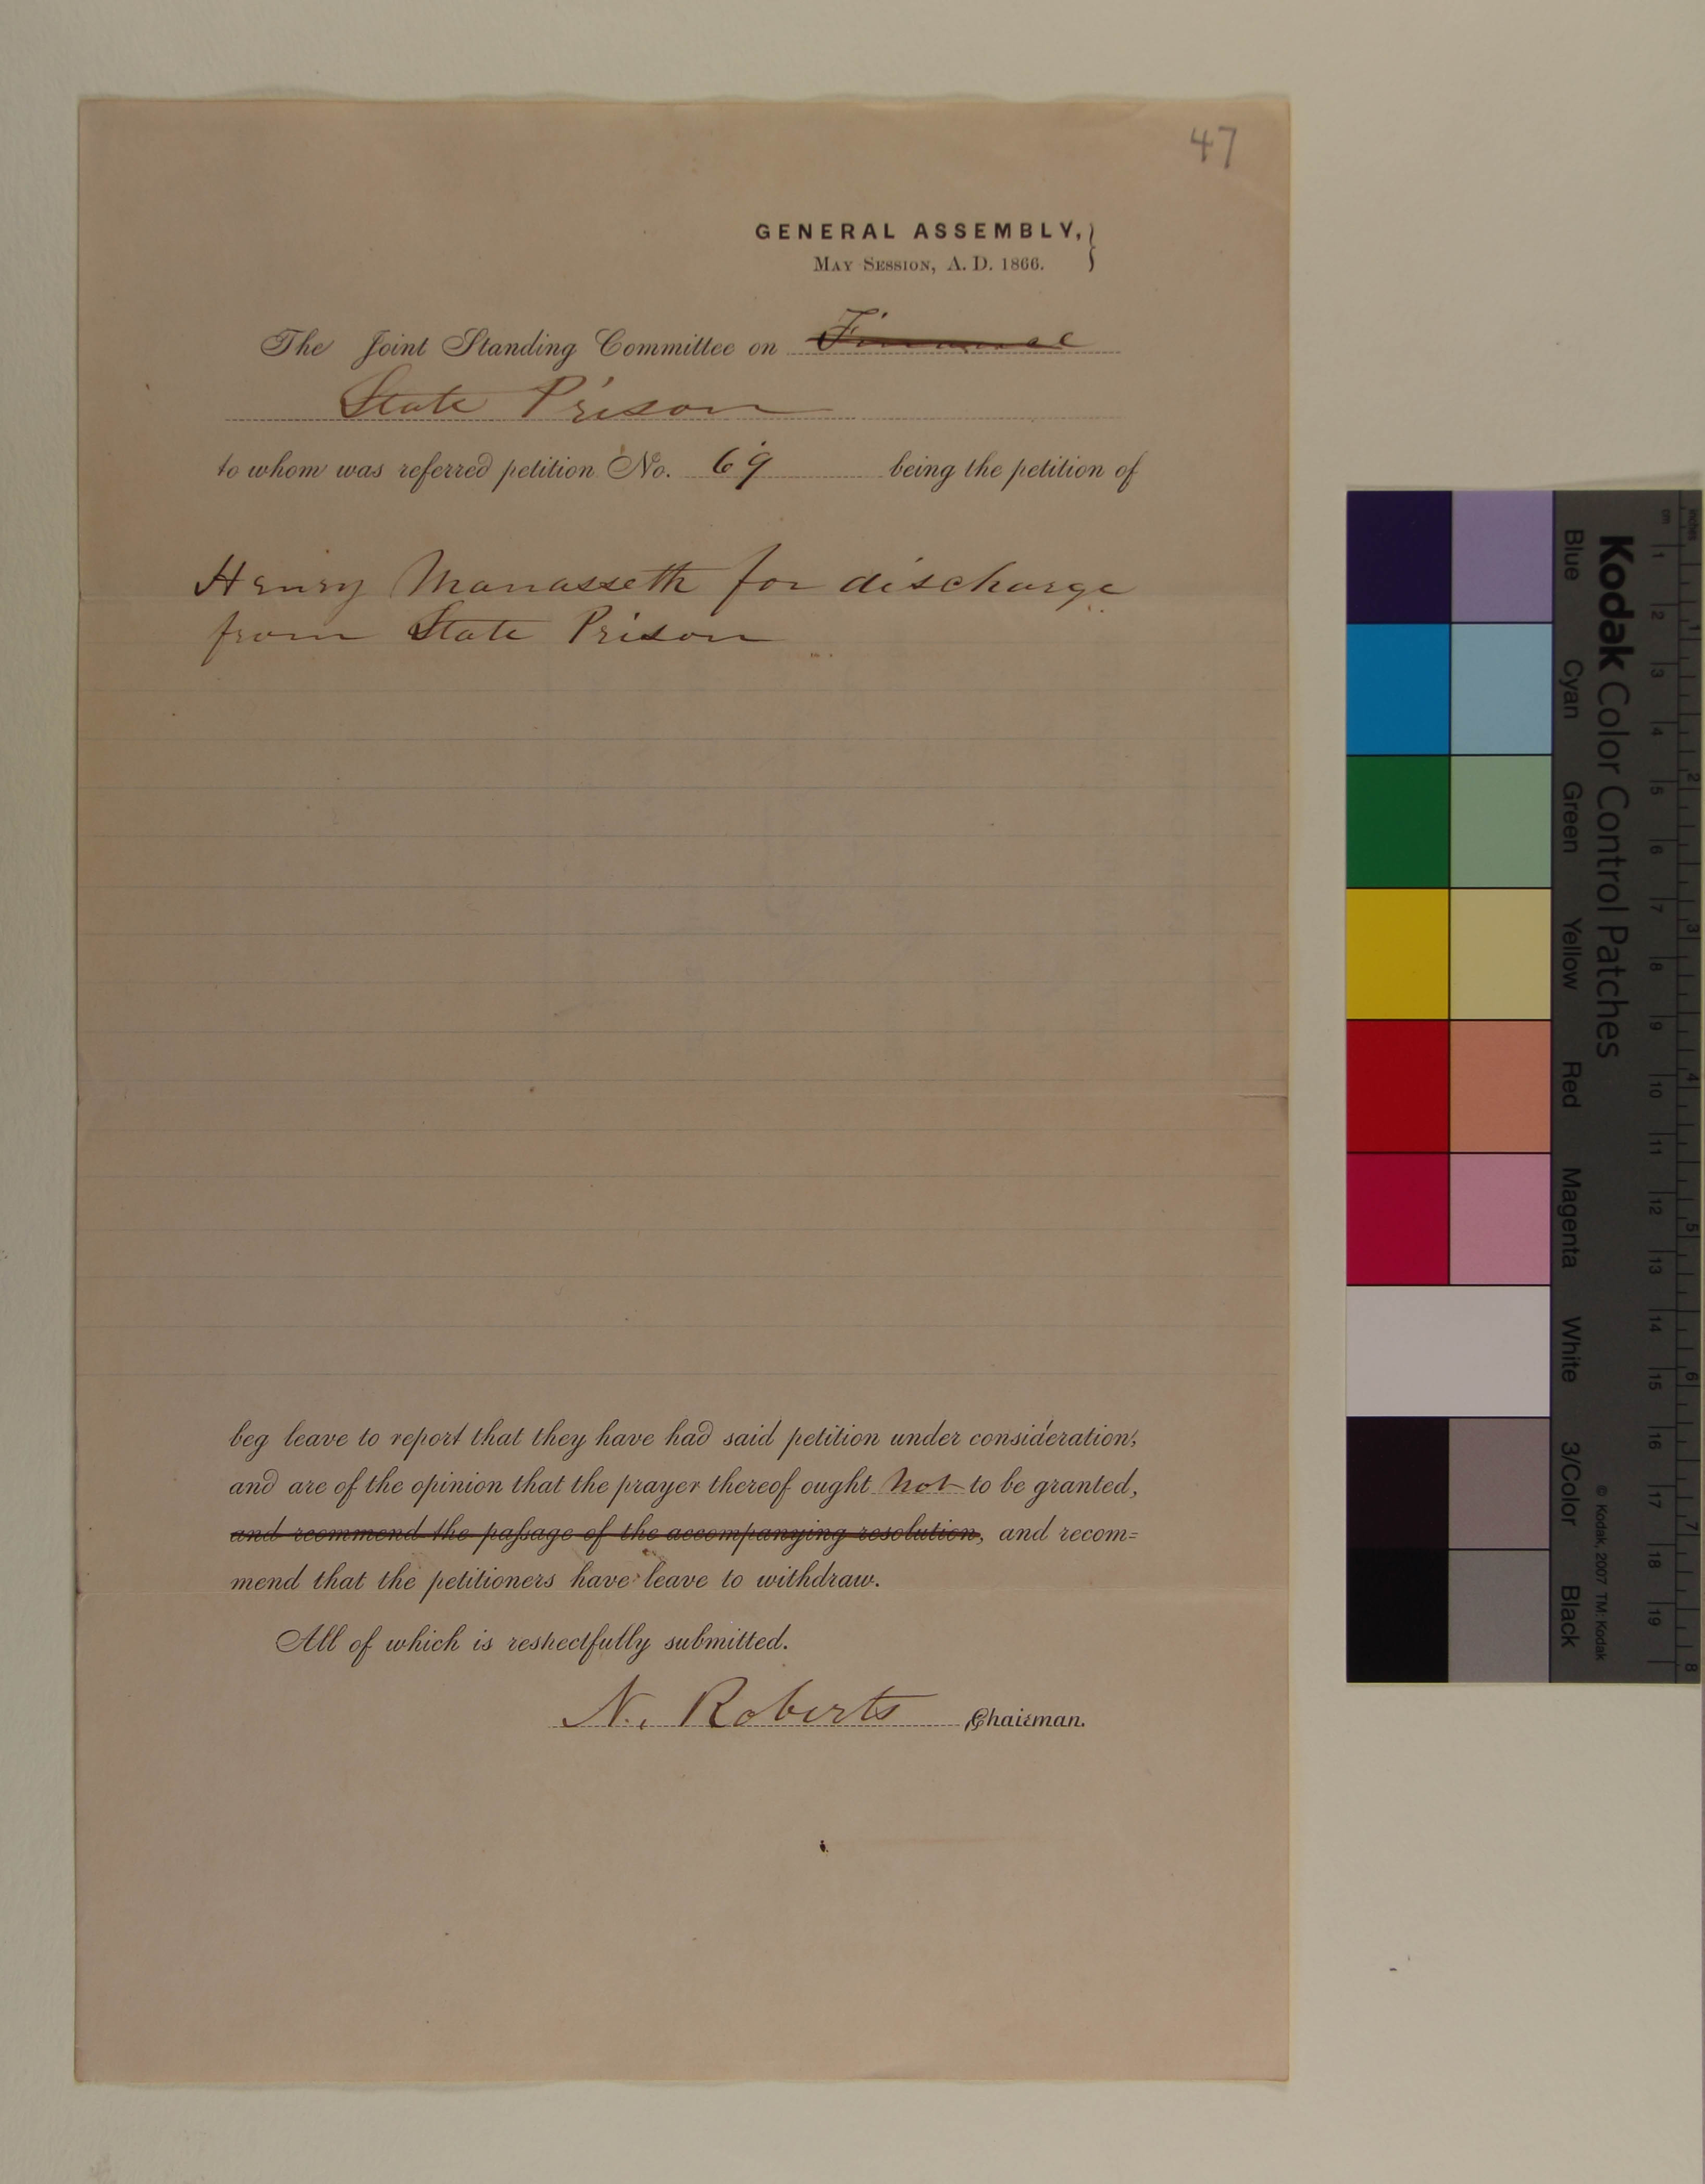 47
GENERAL ASSEMBLY,
MAY SESSION, A. D. 1866.
The Joint Standing Committee on Finance
State Prison
to whom was referred petition No. 69 being the petition of
Henry Manasseth for discharge
from State Prison
beg leave to report that they have had said petition under consideration,
and are of the opinion that the prayer thereof ought not to be granted,
and recommend the passage of the accompanying resolution, and recom=
mend that the petitioners have leave to withdraw.
All of which is respectfully submitted.
N. Roberts Chairman.
Kodak Color Control Patches
Blue Cyan Green Yellow Red Magenta White 3/Color Black
© Kodak, 2007 TM: Kodak
cm 1 2 3 4 5 6 7 8 9 10 11 12 13 14 15 16 17 18 19
inches 1 2 3 4 5 6 7 8